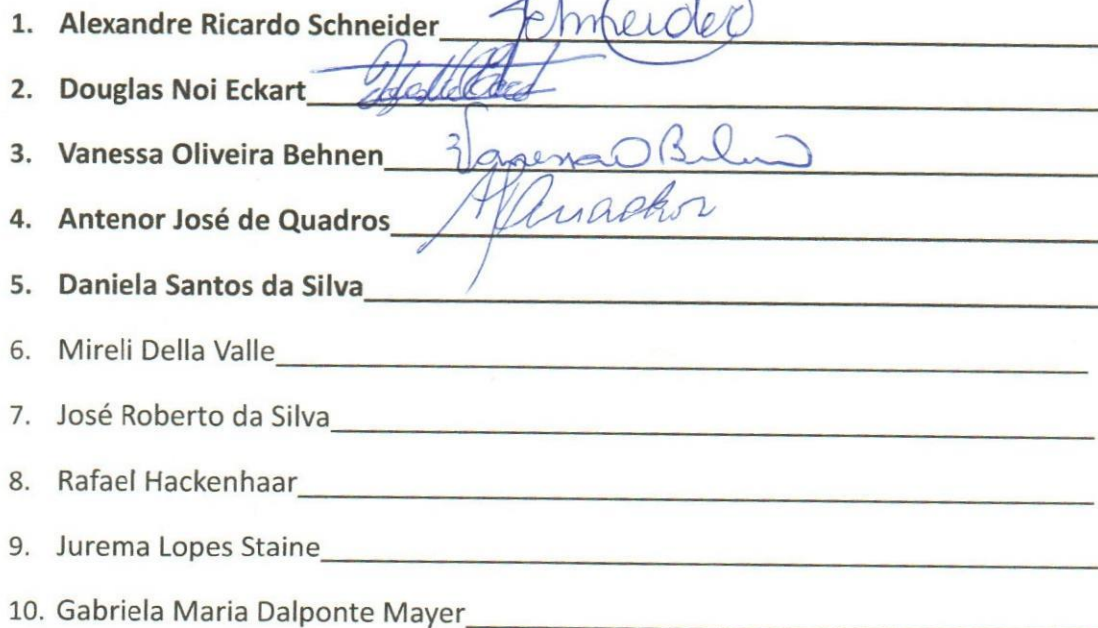 1. Alexandre Ricardo Schneider Schneider
2. Douglas Noi Eckart
3. Vanessa Oliveira Behnen Vanessa O Behnen
4. Antenor José de Quadros AJQuadros
5. Daniela Santos da Silva
6. Mireli Della Valle
7. José Roberto da Silva
8. Rafael Hackenhaar
9. Jurema Lopes Staine
10. Gabriela Maria Dalponte Mayer